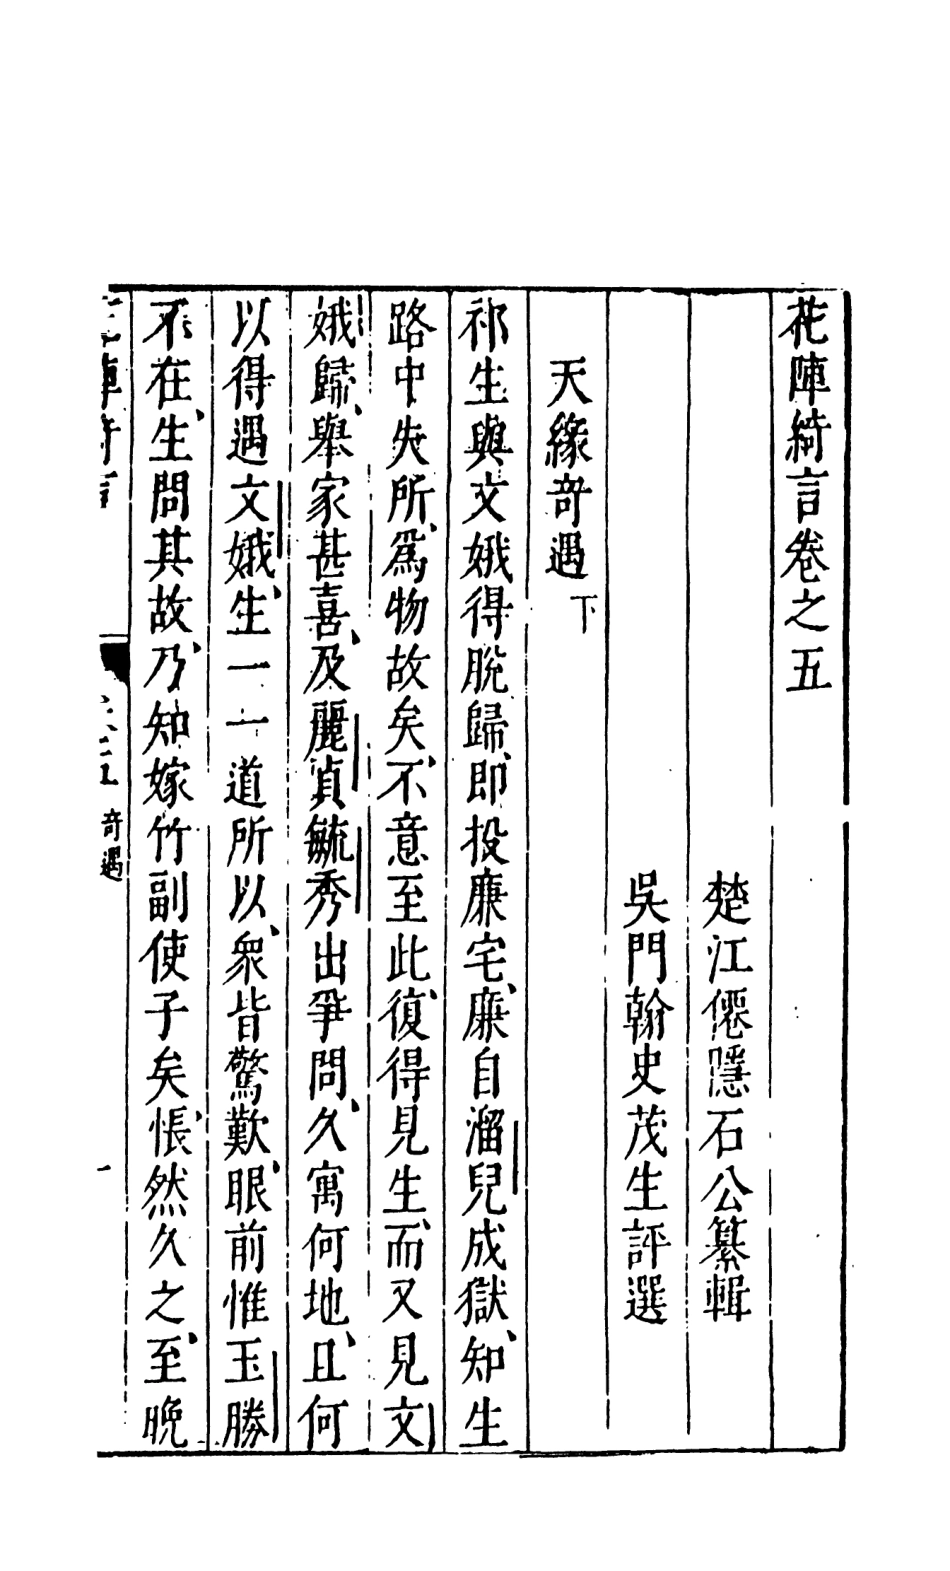 花陣綺言卷之五
楚江僊隱石公纂輯
吳門翰史茂生評選
天緣奇遇 下
祁生與文娥得脫歸、即投廉宅、廉自溜兒成獄、知生
路中失所、爲物故矣、不意至此、復得見生、而又見文
娥歸、舉家甚喜、及麗貞毓秀出爭問、久寓何地、且何
以得遇文娥、生一一道所以、衆皆驚歎、眼前惟玉勝
不在、生問其故、乃知嫁竹副使子矣、悵然久之、至晚
奇遇